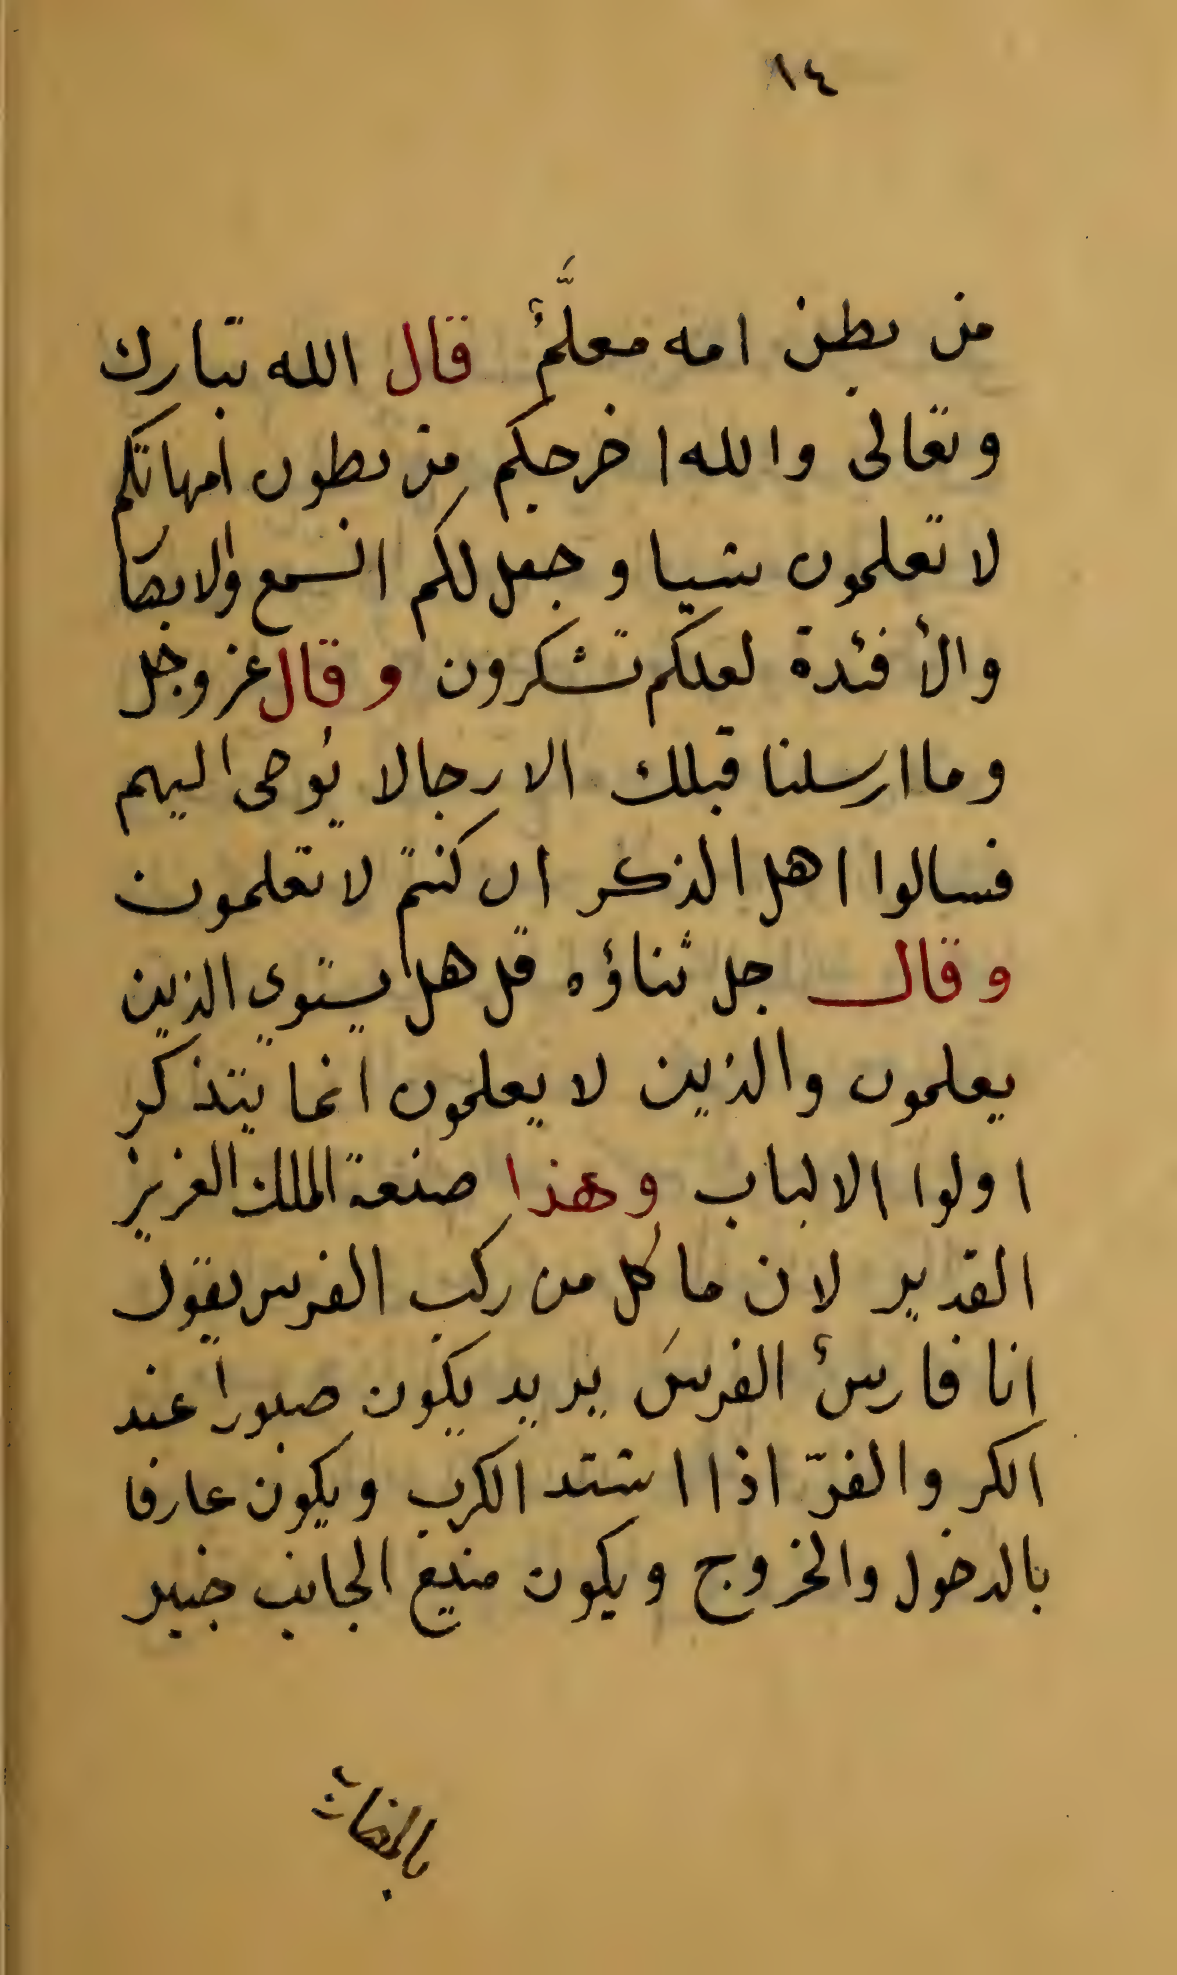 ١٤
من بطن امه معلَّمٌ قال الله تبارك
وتعالى والله اخرجكم من بطون امهاتكم
لا تعلمون شيا وجعل لكم السمع والابصا
والأفئدة لعلكم تشكرون وقال عز وجل
وما ارسلنا قبلك الا رجالا يوحى اليهم
فسالوا اهل الذكر ان كنتم لا تعلمون
وقال جل ثناؤه قل هل يستوي الذين
يعلمون والذين لا يعلمون انما يتذكر
اولوا الالباب وهذا صنعة الملك العزيز
القدير لان ما كل من ركب الفرس يقول
انا فارسٌ الفرسَ يريد يكون صبوراً عند
الكر والفرّ اذا اشتد الكرب ويكون عارفا
بالدخول والخروج ويكون منيع الجانب خبير